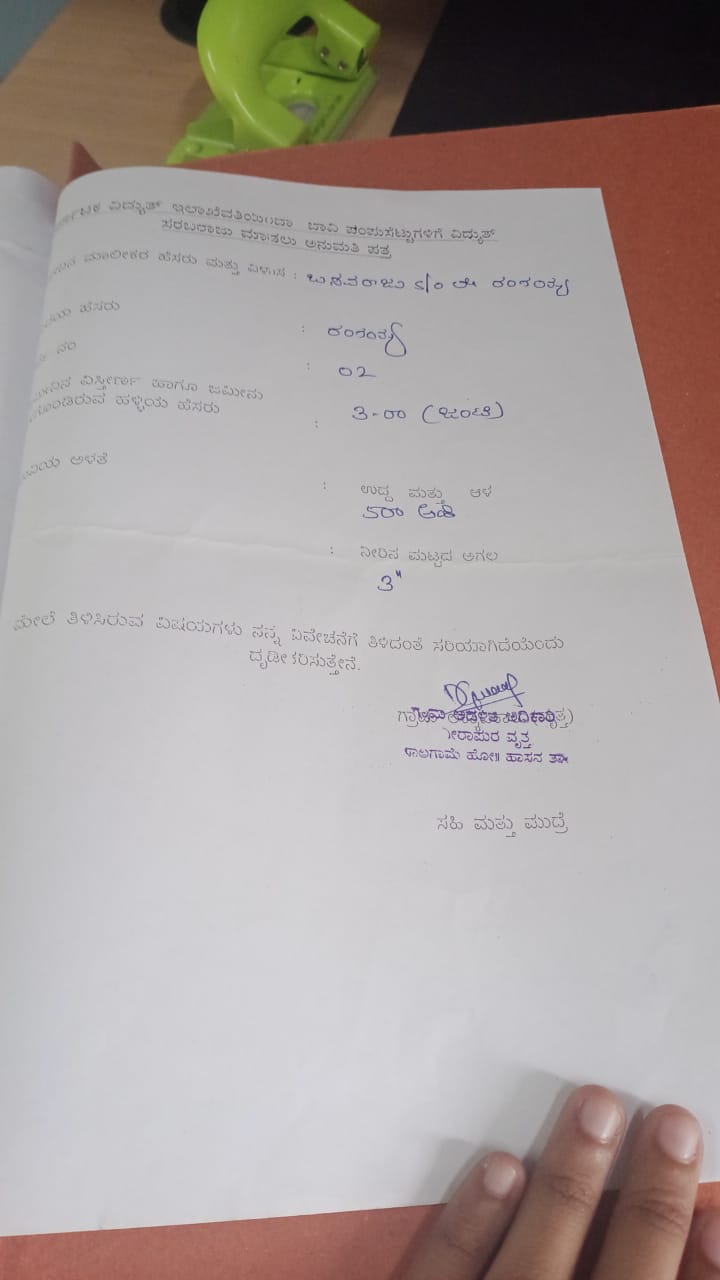 ವಿದ್ಯುತ್ ಇಲಾಖೆವತಿಯಿಂದಾ ಬಾವಿ ಪಂಪುಸೆಟ್ಟುಗಳಿಗೆ ವಿದ್ಯುತ್
ಸರಬರಾಜು ಮಾಡಲು ಅನುಮತಿ ಪತ್ರ
ಮಾಲೀಕರ ಹೆಸರು ಮತ್ತು ವಿಳಾಸ : ಬಸವರಾಜು S/o ಲೇ ರಂಗಯ್ಯ
ಹೆಸರು : ರಂಗಯ್ಯ
ನಂ : 02
ವಿಸ್ತೀರ್ಣ ಹಾಗೂ ಜಮೀನು
ಹಳ್ಳಿಯ ಹೆಸರು : 3-00 (ಜಂಟಿ)
ಅಳತೆ : ಉದ್ದ ಮತ್ತು ಆಳ
500 ಅಡಿ
: ನೀರಿನ ಮಟ್ಟದ ಅಗಲ
3"
ಮೇಲೆ ತಿಳಿಸಿರುವ ವಿಷಯಗಳು ನನ್ನ ವಿವೇಚನೆಗೆ ತಿಳಿದಂತೆ ಸರಿಯಾಗಿದೆಯೆಂದು
ದೃಡೀಕರಿಸುತ್ತೇನೆ.
ಆಡಳಿತ ಅಧಿಕಾರಿ
ವೃತ್ತ
ಸಾಲಗಾಮೆ ಹೋ॥ ಹಾಸನ ತಾ॥
ಸಹಿ ಮತ್ತು ಮುದ್ರೆ